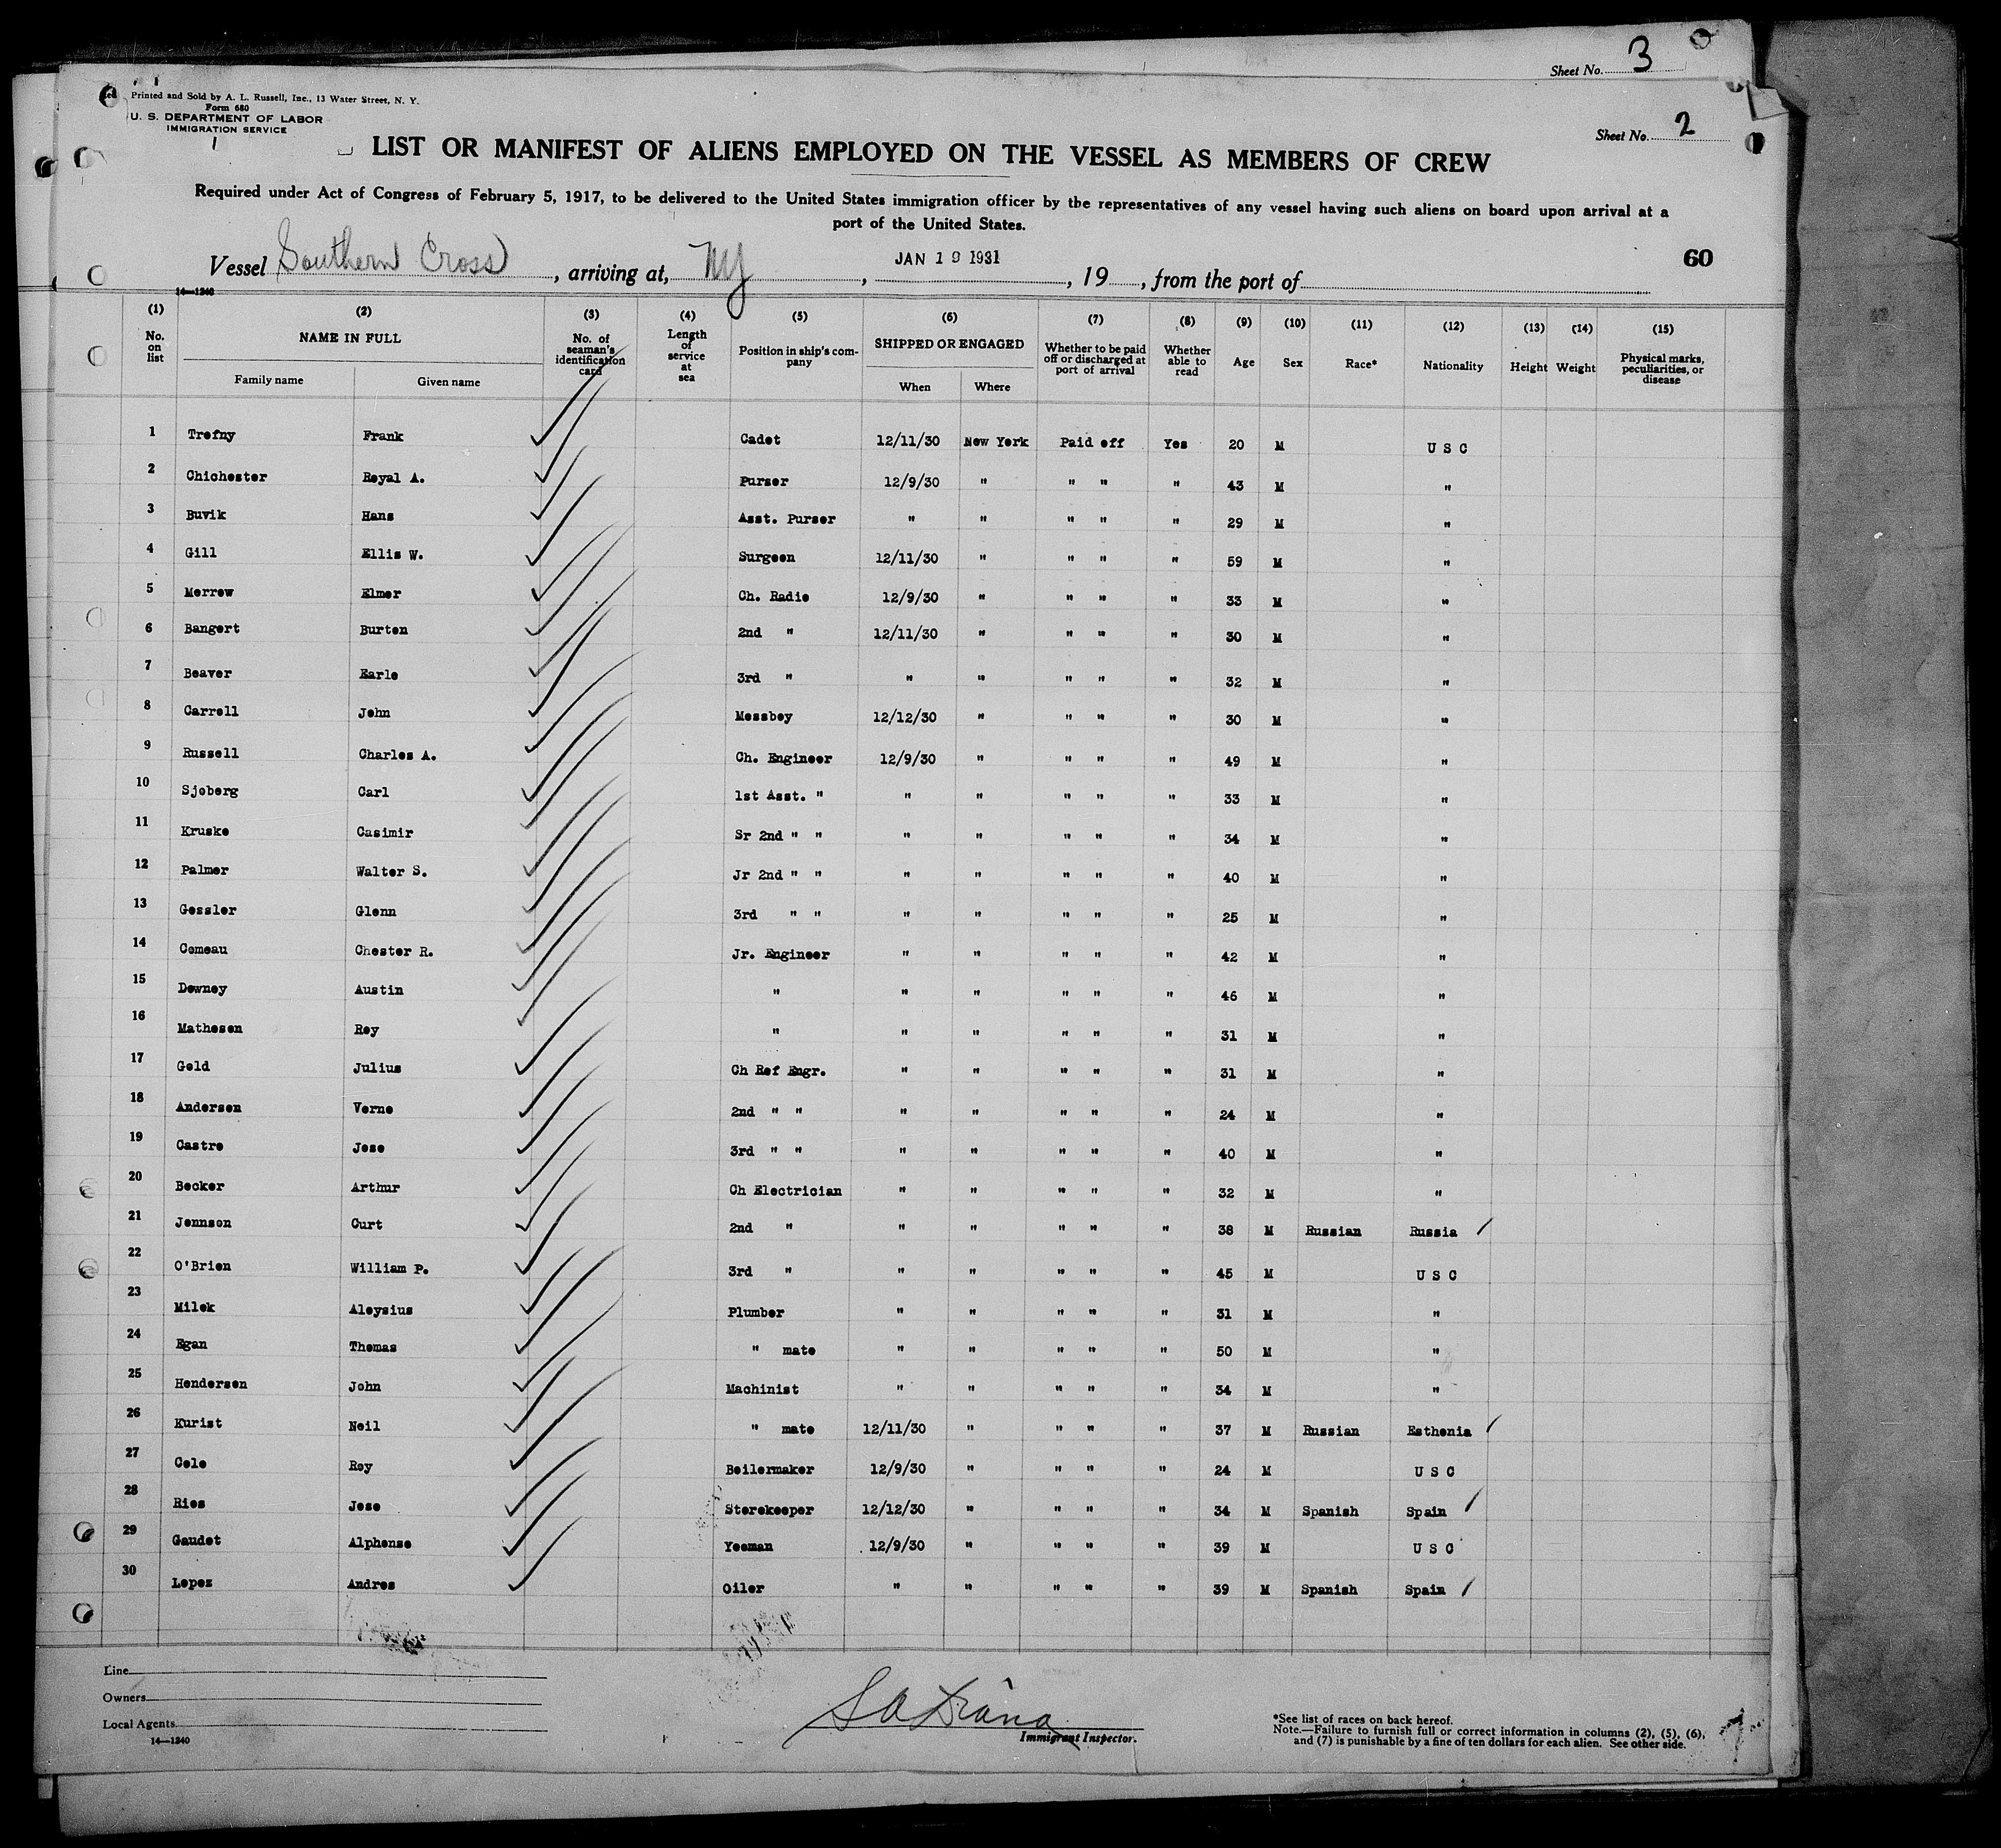 Sheet No. 3
Printed and Sold by A. L. Russell, Inc., 13 Water Street, N. Y.
Form 680
U. S. DEPARTMENT OF LABOR
IMMIGRATION SERVICE
Sheet No. 2
LIST OR MANIFEST OF ALIENS EMPLOYED ON THE VESSEL AS MEMBERS OF CREW
Required under Act of Congress of February 5, 1917, to be delivered to the United States immigration officer by the representatives of any vessel having such aliens on board upon arrival at a
port of the United States.
Vessel Southern Cross, arriving at, NY, JAN 19 1931, 19, from the port of
60
14—1240
(1) (2) (3) (4) (5) (6) (7) (8) (9) (10) (11) (12) (13) (14) (15)
No. on list NAME IN FULL Family name Given name No. of seaman's identification card Length of service at sea Position in ship's company SHIPPED OR ENGAGED When Where Whether to be paid off or discharged at port of arrival Whether able to read Age Sex Race* Nationality Height Weight Physical marks, peculiarities, or disease
1 Trefny Frank Cadet 12/11/30 New York Paid off Yes 20 M U S C
2 Chichester Royal A. Purser 12/9/30 " " " " 43 M "
3 Buvik Hans Asst. Purser " " " " " 29 M "
4 Gill Ellis W. Surgeon 12/11/30 " " " " 59 M "
5 Morrow Elmer Ch. Radio 12/9/30 " " " " 33 M "
6 Bangert Burton 2nd " 12/11/30 " " " " 30 M "
7 Beaver Earle 3rd " " " " " " 32 M "
8 Carroll John Messboy 12/12/30 " " " " 30 M "
9 Russell Charles A. Ch. Engineer 12/9/30 " " " " 49 M "
10 Sjoberg Carl 1st Asst. " " " " " " 33 M "
11 Kruske Casimir Sr 2nd " " " " " " " 34 M "
12 Palmer Walter S. Jr 2nd " " " " " " " 40 M "
13 Gessler Glenn 3rd " " " " " " " 25 M "
14 Comeau Chester R. Jr. Engineer " " " " " 42 M "
15 Downey Austin " " " " " " 46 M "
16 Matheson Roy " " " " " " 31 M "
17 Gold Julius Ch Ref Engr. " " " " " 31 M "
18 Anderson Verne 2nd " " " " " " " 24 M "
19 Castro Jose 3rd " " " " " " " 40 M "
20 Becker Arthur Ch Electrician " " " " " 32 M "
21 Jennson Curt 2nd " " " " " " 38 M Russian Russia
22 O'Brien William P. 3rd " " " " " " 45 M U S C
23 Milek Aloysius Plumber " " " " " 31 M "
24 Egan Thomas " mate " " " " " 50 M "
25 Henderson John Machinist " " " " " 34 M "
26 Kurist Neil " mate 12/11/30 " " " " 37 M Russian Esthonia
27 Cole Roy Boilermaker 12/9/30 " " " " 24 M U S C
28 Rios Jose Storekeeper 12/12/30 " " " " 34 M Spanish Spain
29 Gaudet Alphonse Yeoman 12/9/30 " " " " 39 M U S C
30 Lopez Andres Oiler " " " " " 39 M Spanish Spain
Line
Owners
Local Agents
14—1240
Immigrant Inspector.
*See list of races on back hereof.
Note.—Failure to furnish full or correct information in columns (2), (5), (6),
and (7) is punishable by a fine of ten dollars for each alien. See other side.